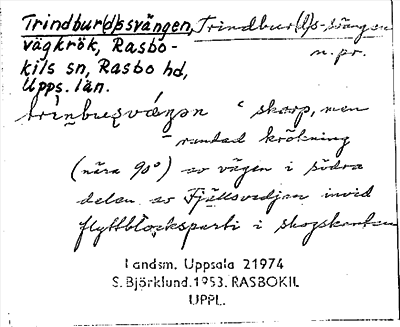 Trindbur(d)svängen, Trindbur(d)s-svängen
vägkrök, Rasbo- n. pr.
kils sn, Rasbo hd,
Upps. län.
"skarp, men
rundad krökning
(nära 90°) av vägen i södra
delen av Fjällsvedjan invid
flyttblocksparti i skogskanten
Landsm. Uppsala 21974
S. Björklund. 1953. RASBOKIL
UPPL.